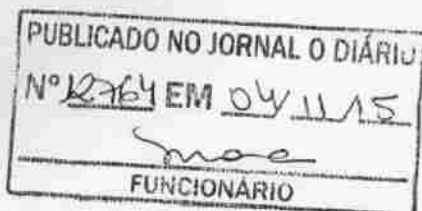 PUBLICADO NO JORNAL O DIÁRIO
Nº 12764 EM 04/11/15
FUNCIONÁRIO